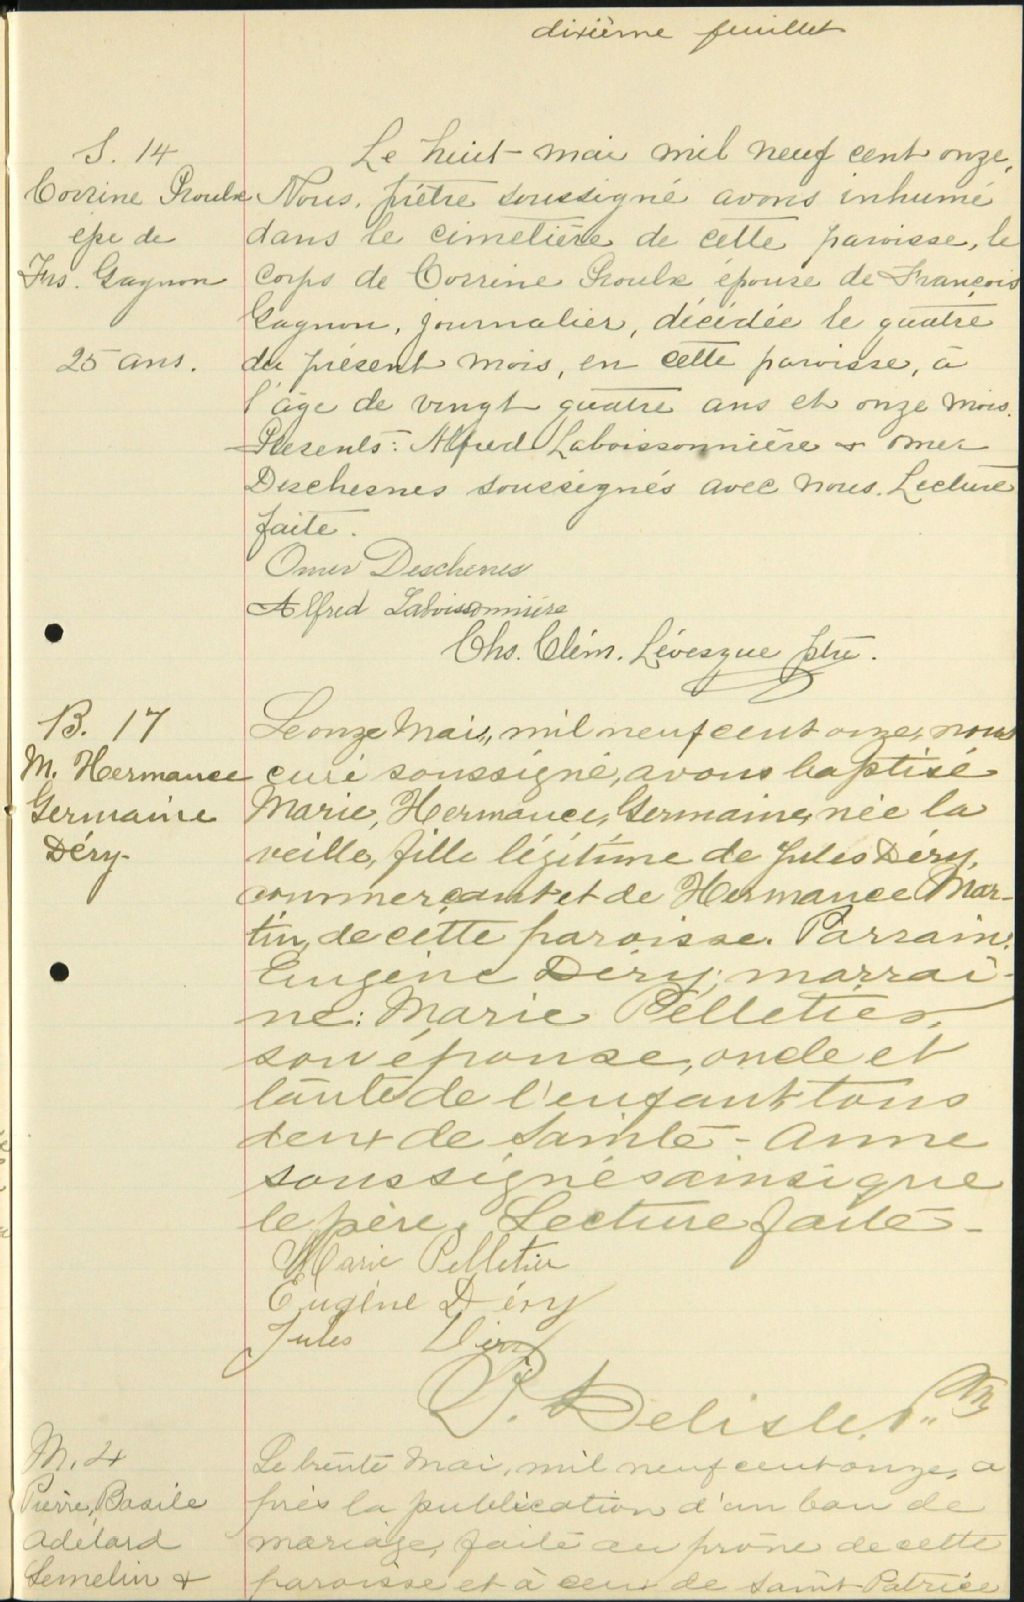 dixième feuillet
S. 14
Corrine Proulx
épse de
Frs. Gagnon
25 ans.
Le huit mai mil neuf cent onze,
Nous, prêtre soussigné avons inhumé
dans le cimetière de cette paroisse, le
corps de Corrine Proulx épouse de François
Gagnon, journalier, décédée le quatre
du présent mois, en cette paroisse, à
l'âge de vingt quatre ans et onze mois.
Présents: Alfred Laboissonnière & Omer
Deschesnes soussignés avec nous. Lecture
faite.
Omer Deschenes
Alfred Laboissonnière
Chs. Clém. Lévesque ptre.
B. 17
M. Hermance
Germaine
Déry
Le onze Mai, mil neuf cent onze, nous
curé soussigné, avons baptisé
Marie, Hermance, Germaine, née la
veille, fille légitime de Jules Déry,
commerçant et de Hermance Mar-
tin, de cette paroisse. Parrain:
Eugène Déry; marrai-
ne: Marie Pelletier,
son épouse, oncle et
tante de l'enfant, tous
deux de Sainte-Anne
soussignés ainsi que
le père. Lecture faite-
Marie Pelletier
Eugène Déry
Jules Déry
P. Delisle,
M. 4
Pierre, Basile
Adélard
Lemelin &
Le trente Mai, mil neuf cent onze, a
près la publication d'un ban de
mariage, faite au prône de cette
paroisse et à celui de Saint-Patrice